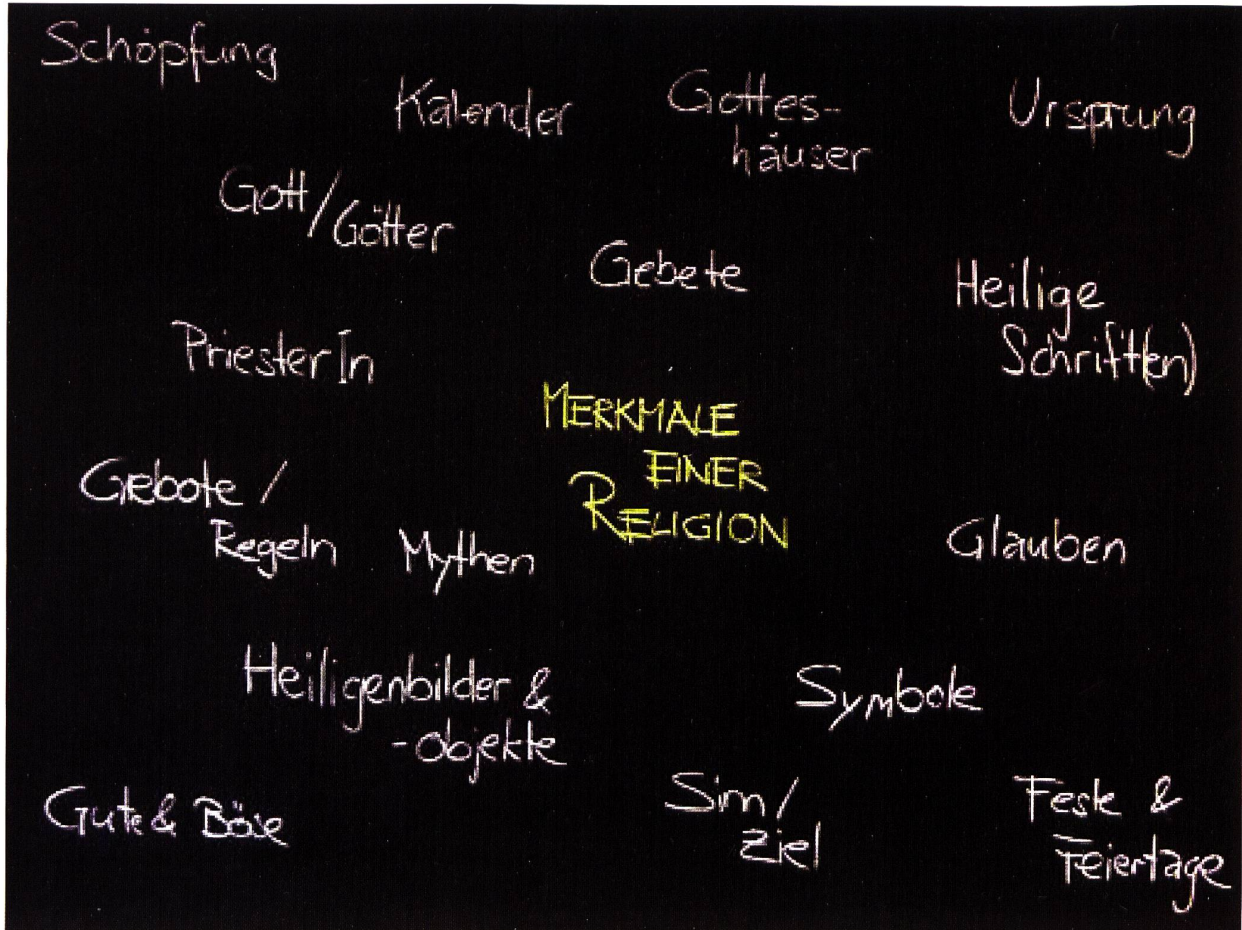 Schöpfung
Kalender
Gottes-
häuser
Ursprung
Gott/Götter
Gebete
Heilige
Schrift(en)
PriesterIn
MERKMALE
EINER
RELIGION
Gebote /
Regeln
Mythen
Glauben
Heiligenbilder &
-objekte
Symbole
Gute & Böse
Sinn/
Ziel
Feste &
Feiertage